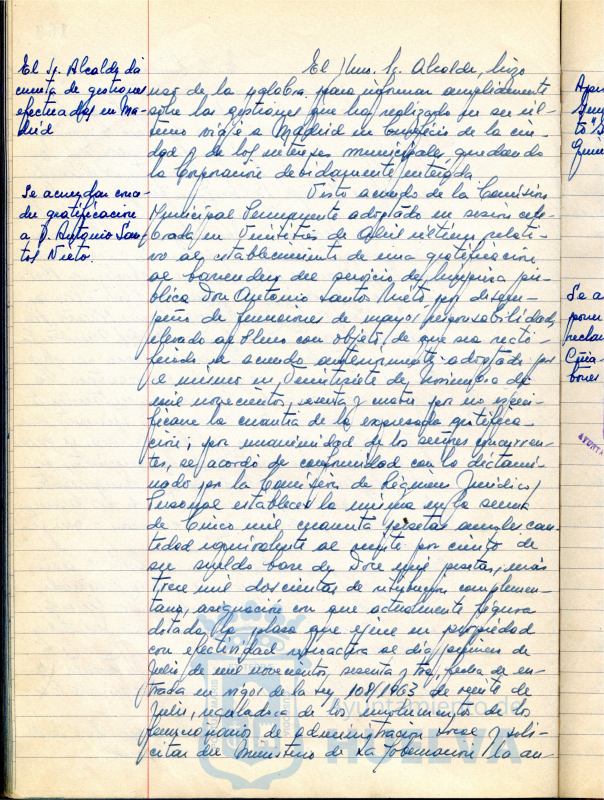 El Sr. Alcalde da
cuenta de gestiones
efectuadas en Ma-
drid
El Ilmo. Sr. Alcalde, hizo
uso de la palabra para informar ampliamente
sobre las gestiones que ha realizado en su úl-
timo viaje a Madrid en beneficio de la ciu-
dad y de los intereses municipales, quedando
la Corporación debidamente enterada.
Se acuerdan conce-
der gratificación
a D. Antonio San-
tos Nieto.
Visto acuerdo de la Comisión
Municipal Permanente adoptado en sesión cele-
brada en Veintitrés de Abril último, relati-
vo al establecimiento de una gratificación
al barrendero del servicio de limpieza pú-
blica Don Antonio Santos Nieto por desem-
peño de funciones de mayor responsabilidad,
elevado al Pleno con objeto de que sea recti-
ficado el acuerdo anteriormente adoptado por
el mismo en Veintisiete de Noviembre de
mil novecientos sesenta y cuatro por no especi-
ficarse la cuantía de la expresada gratifica-
ción; por unanimidad de los señores concurren-
tes, se acordó de conformidad con lo dictami-
nado por la Comisión de Régimen Jurídico y
Personal establecer la misma en la suma
de Cinco mil cuarenta pesetas anuales can-
tidad equivalente al veinte por ciento de
su sueldo base de Doce mil pesetas, más
trece mil doscientas de retribución complemen-
taria, asignación con que actualmente figura
dotada la plaza que ejerce en propiedad
con efectividad retroactiva al día primero de
Julio de mil novecientos sesenta y tres, fecha de en-
trada en vigor de la Ley 108/1963 de veinte de
Julio, reguladora de los emolumentos de los
funcionarios de administración local y soli-
citar del Ministerio de la Gobernación la au-
Ayuntamiento de
HUELVA
Se a